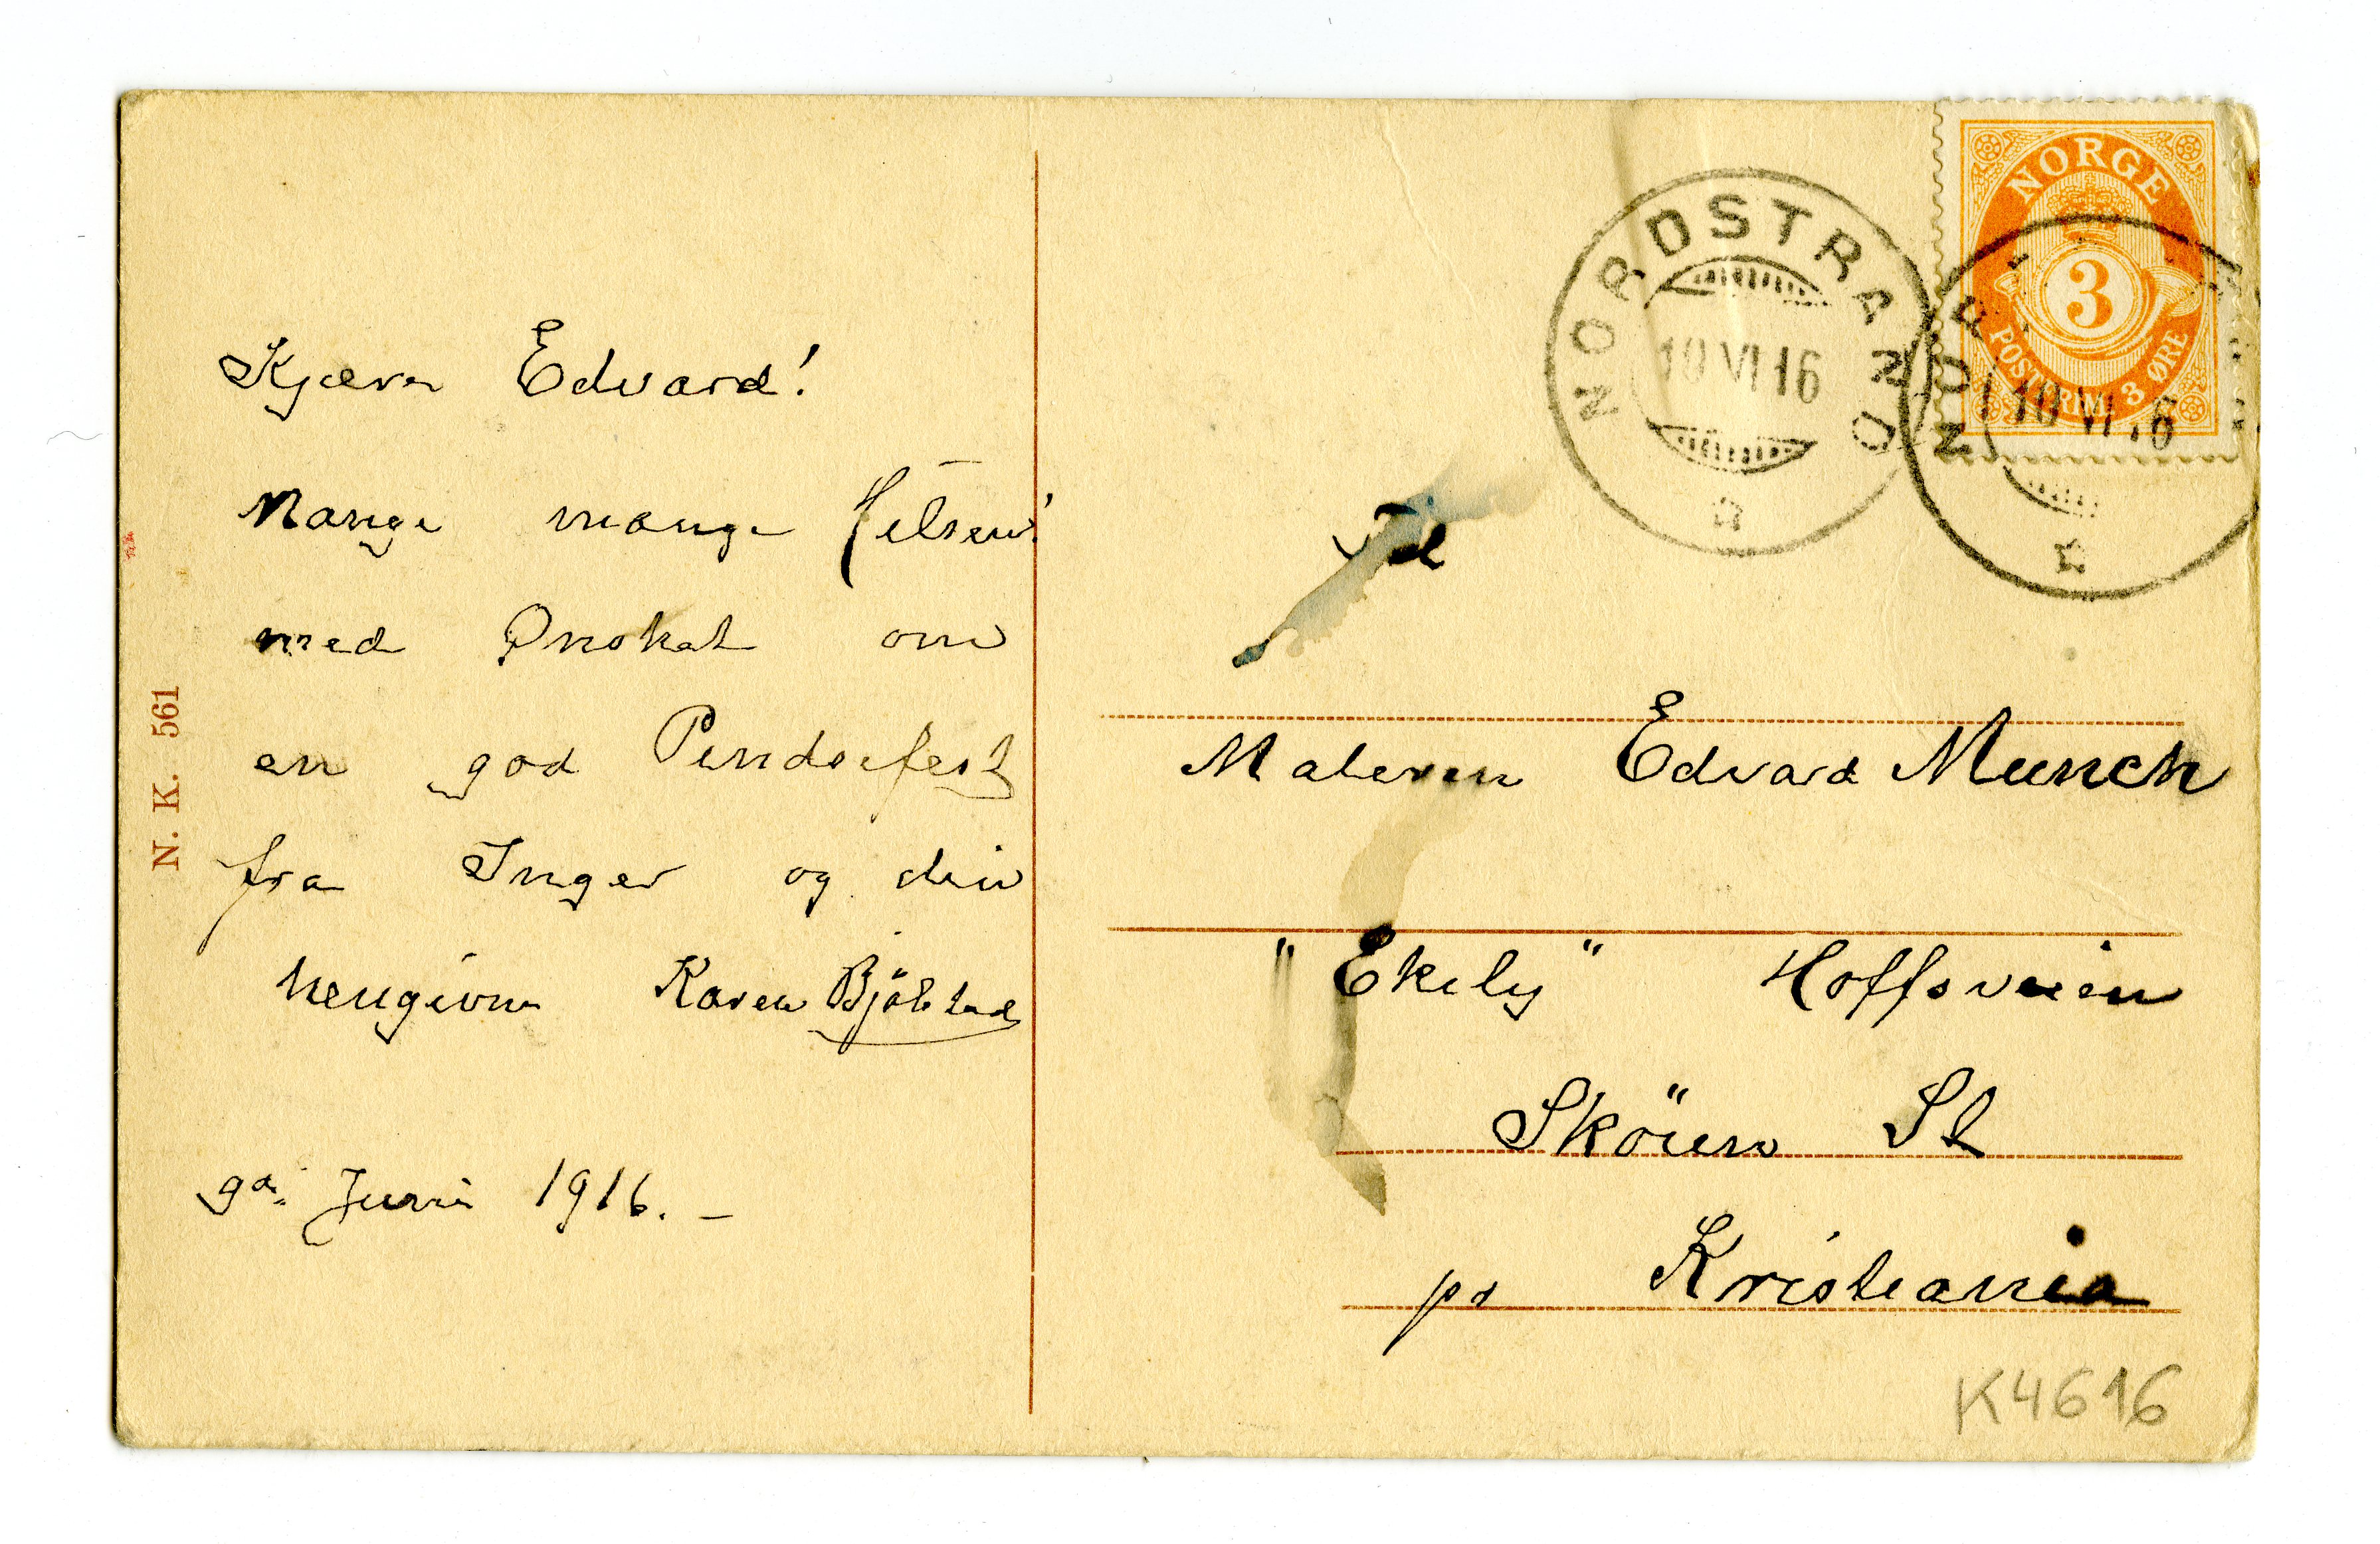 Kjære Edvard!
Mange mange Hilsen!
med Ønsket om
en god Pindsefest
fra Inger og din
hengivne Karen Bjölstad
9de Juni 1916. –
N. K. 561
NORDSTRAND
10 VI 16
NORGE
3
POSTFRIM. 3 ØRE
NOR
10 VI 16
Til
Maleren Edvard Munch
"Ekely" Hoffsveien
Sköien St
pr Kristiania
K4616